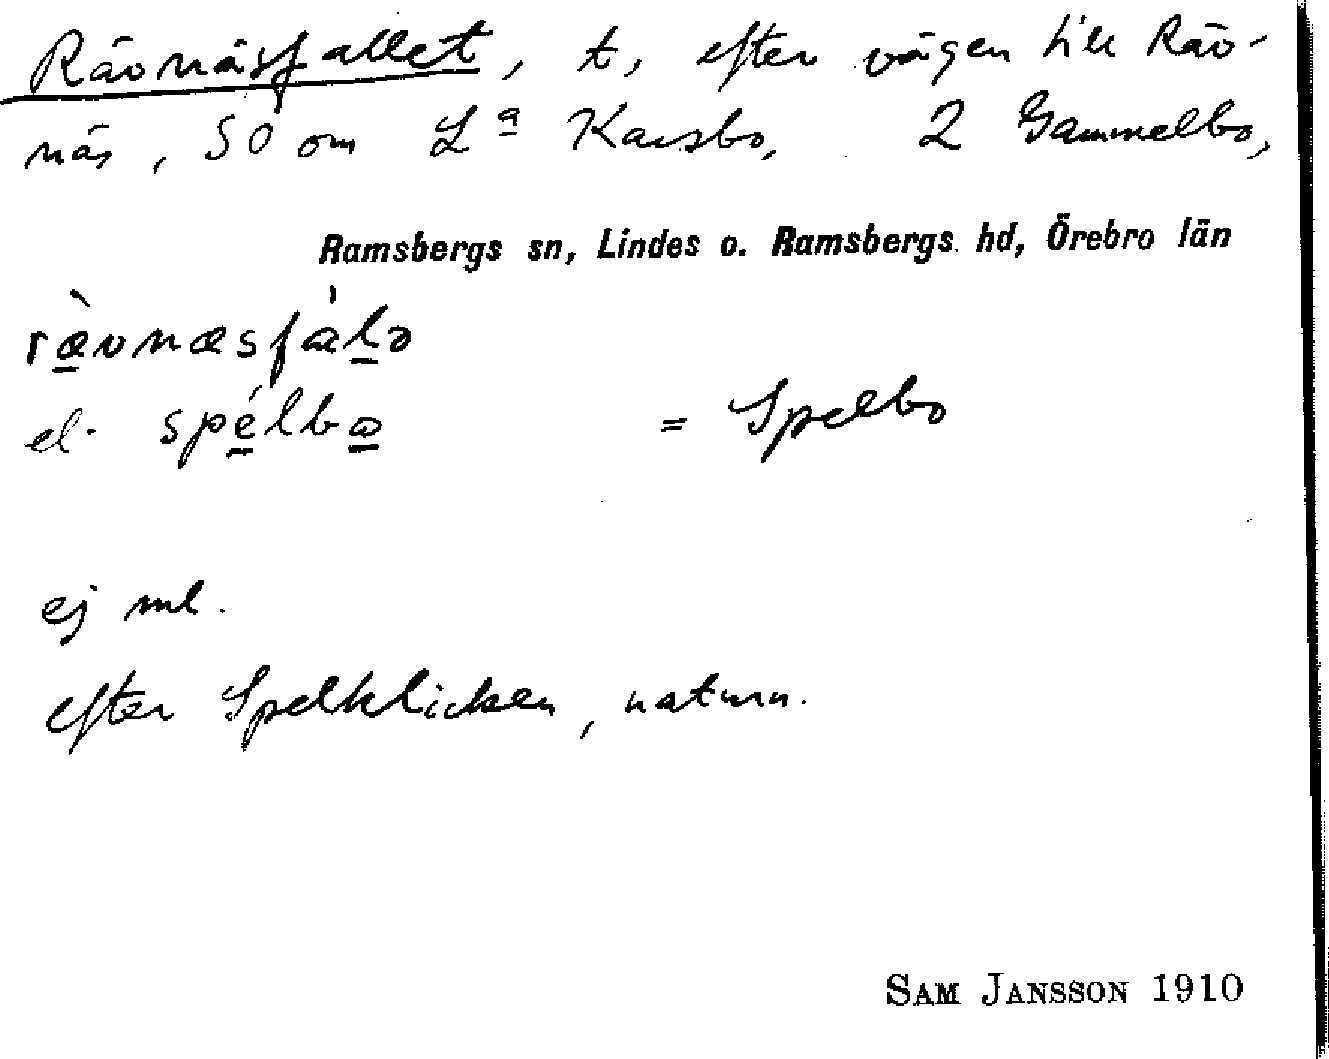 Rävnäsfallet, t, efter vägen till Räv-
näs, SO om Lª Karsbo, 2 Gammelbo,
Ramsbergs sn, Lindes o. Ramsbergs hd, Örebro län
el. = Spelbo
ej ml.
efter Spelklicken, naturn.
SAM JANSSON 1910